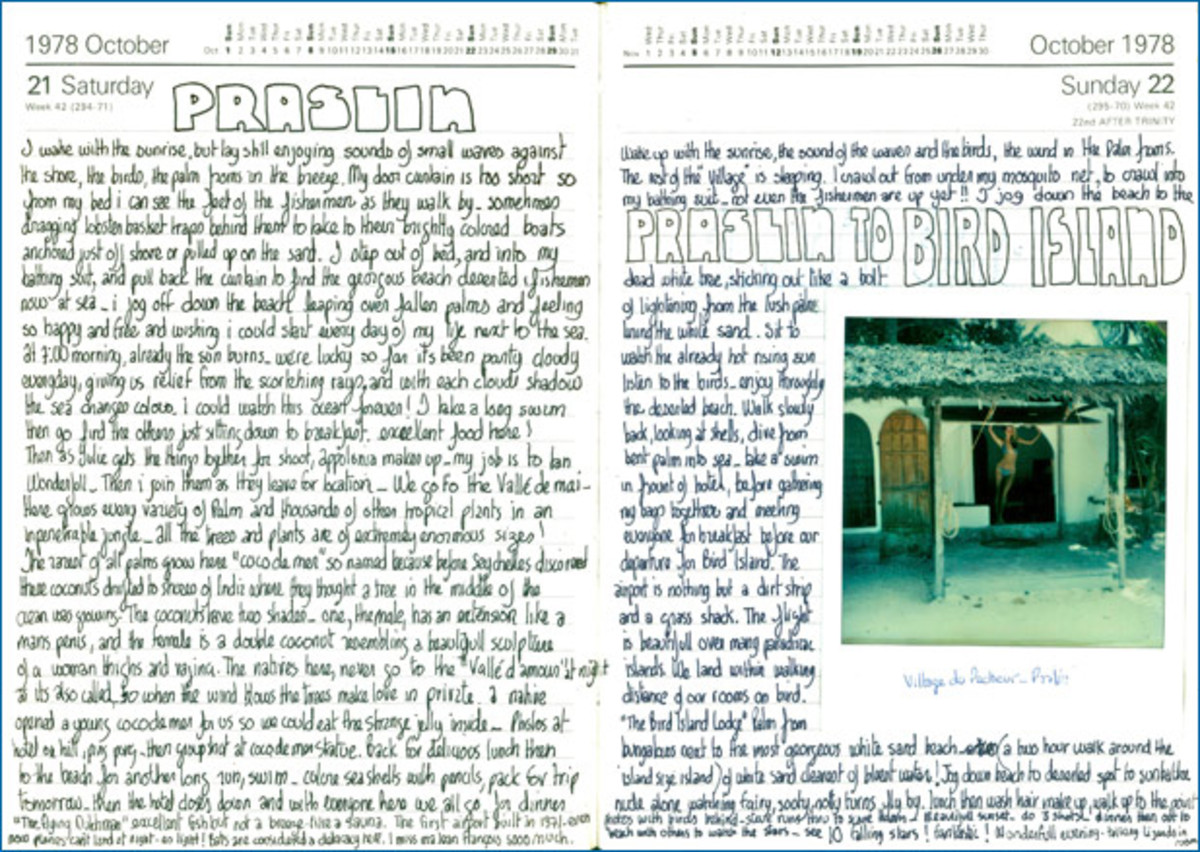 1978 October
21 Saturday
Week 42 (294-71)
PRASLIN
I wake with the sunrise, but lay still enjoying sounds of small waves against
the shore, the birds, the palm frons in the breeze. My door curtain is too short so
from my bed i can see the feet of the fishermen as they walk by - sometimes
dragging lobster basket traps behind them to take to their brightly colored boats
anchored just off shore or pulled up on the sand. I step out of bed, and into my
bathing suit, and pull back the curtain to find the georgous beach deserted ; fishermen
now at sea - i jog off down the beach leaping over fallen palms and feeling
so happy and free and wishing i could start every day of my life next to the sea.
at 7:00 morning, already the sun burns - were lucky so far it's been partly cloudy
everyday, giving us relief from the scortching rays, and with each clouds shadow
the sea changes colour. i could watch this ocean forever! I take a long swim
then go find the others just sitting down to breakfast. excellent food here!
Then as Julie gets the things together for shoot, appolonia makes up - my job is to tan
Wonderfull - Then i join them as they leave for location - We go to the Vallé de mai -
there grows every variety of Palm and thousands of other tropical plants in an
inpenetrable jungle - all the trees and plants are of extremely enormous sizes!
The rarest of all palms grow here "coco de mer" so named because before Seychelles discovered
these coconuts drifted to shores of India where they thought a tree in the middle of the
ocean was growing. The coconuts have two shades - one, the male, has an extension like a
mans penis, and the female is a double coconut resembling a beautifull sculpture
of a woman thighs and vagina. The natives here, never go to the "Vallé d'amour" at night
as its also called, so when the wind blows the trees make love in private. a native
opened a young coco de mer for us so we could eat the strange jelly inside - Photos at
hotel on hill, ping pong - then group hot at coco de mer statue. Back for delicious lunch then
to the beach for another long run, swim - colore sea shells with pencils, pack for trip
tomorrow. then the hotel closes down and with everyone here we all go for dinner
"The Flying Dutchman" excellent fish but not a breeze - like a sauna. The first airport built in 1971 - even
now planes can't land at night - no light! Bats are considered a delicacy here. I miss ma Jean François sooo much.
October 1978
Sunday 22
(295-70) Week 42
22nd AFTER TRINITY
Wake up with the sunrise, the sound of the waves and the birds, the wind in the Palm frons.
The rest of the "Village" is sleeping. I crawl out from under my mosquito net, to crawl into
my bathing suit - not even the fishermen are up yet!! I jog down the beach to the
PRASLIN TO BIRD ISLAND
dead white tree, sticking out like a bolt
of lightening from the lush palms
lining the white sand. Sit to
watch the already hot rising sun
listen to the birds - enjoy thoroughly
the deserted beach. Walk slowly
back, looking at shells, dive from
bent palm into sea - take a swim
in frount of hotel, before gathering
my bags together and meeting
everyone for breakfast before our
departure for Bird Island. The
airport is nothing but a dirt strip
and a grass shack. The flight
is beautifull over many paradisiac
islands. We land within walking
distance of our rooms on bird.
"The Bird Island Lodge" Palm fron
bungalows next to the most georgeous white sand beach - (a two hour walk around the
island size island) of white sand clearest of bluest water! Jog down beach to deserted spot to sunbathe
nude alone watching fairy, sooty, noddy turns fly by. lunch then wash hair make up, walk up to the point
photos with birds behind - Beautifull sunset - do 3 shots! dinner then off to
beach with others to watch the stars - see 10 falling stars! fantastic! Wonderfull evening - talking
Village du Pecheur - Praslin